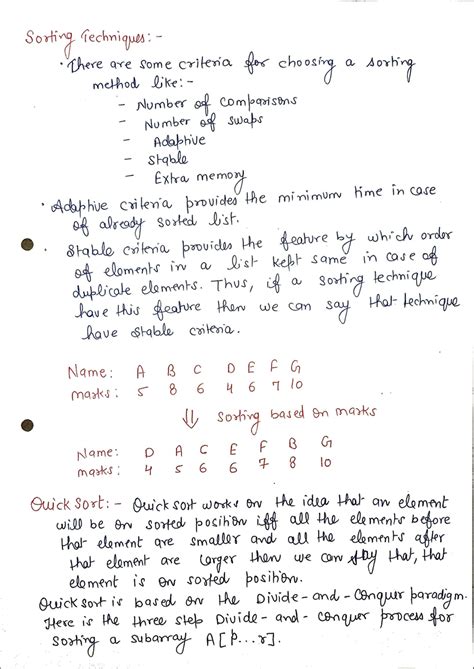 Sorting Techniques:-
• There are some criteria for choosing a sorting
method like:-
- Number of comparisons
- Number of swaps
- Adaptive
- Stable
- Extra memory
• Adaptive criteria provides the minimum time in case
of already sorted list.
• Stable criteria provides the feature by which order
of elements in a list kept same in case of
duplicate elements. Thus, if a sorting technique
have this feature then we can say that technique
have stable criteria.
Name: A B C D E F G
marks: 5 8 6 4 6 7 10
⇓ sorting based on marks
Name: D A C E F B G
marks: 4 5 6 6 7 8 10
Quick Sort:- Quick sort works on the idea that an element
will be on sorted position iff all the elements before
that element are smaller and all the elements after
that element are larger then we can say that, that
element is on sorted position.
Quick sort is based on the Divide-and-Conquer paradigm.
Here is the three step Divide-and-conquer process for
sorting a subarray A[p...r].